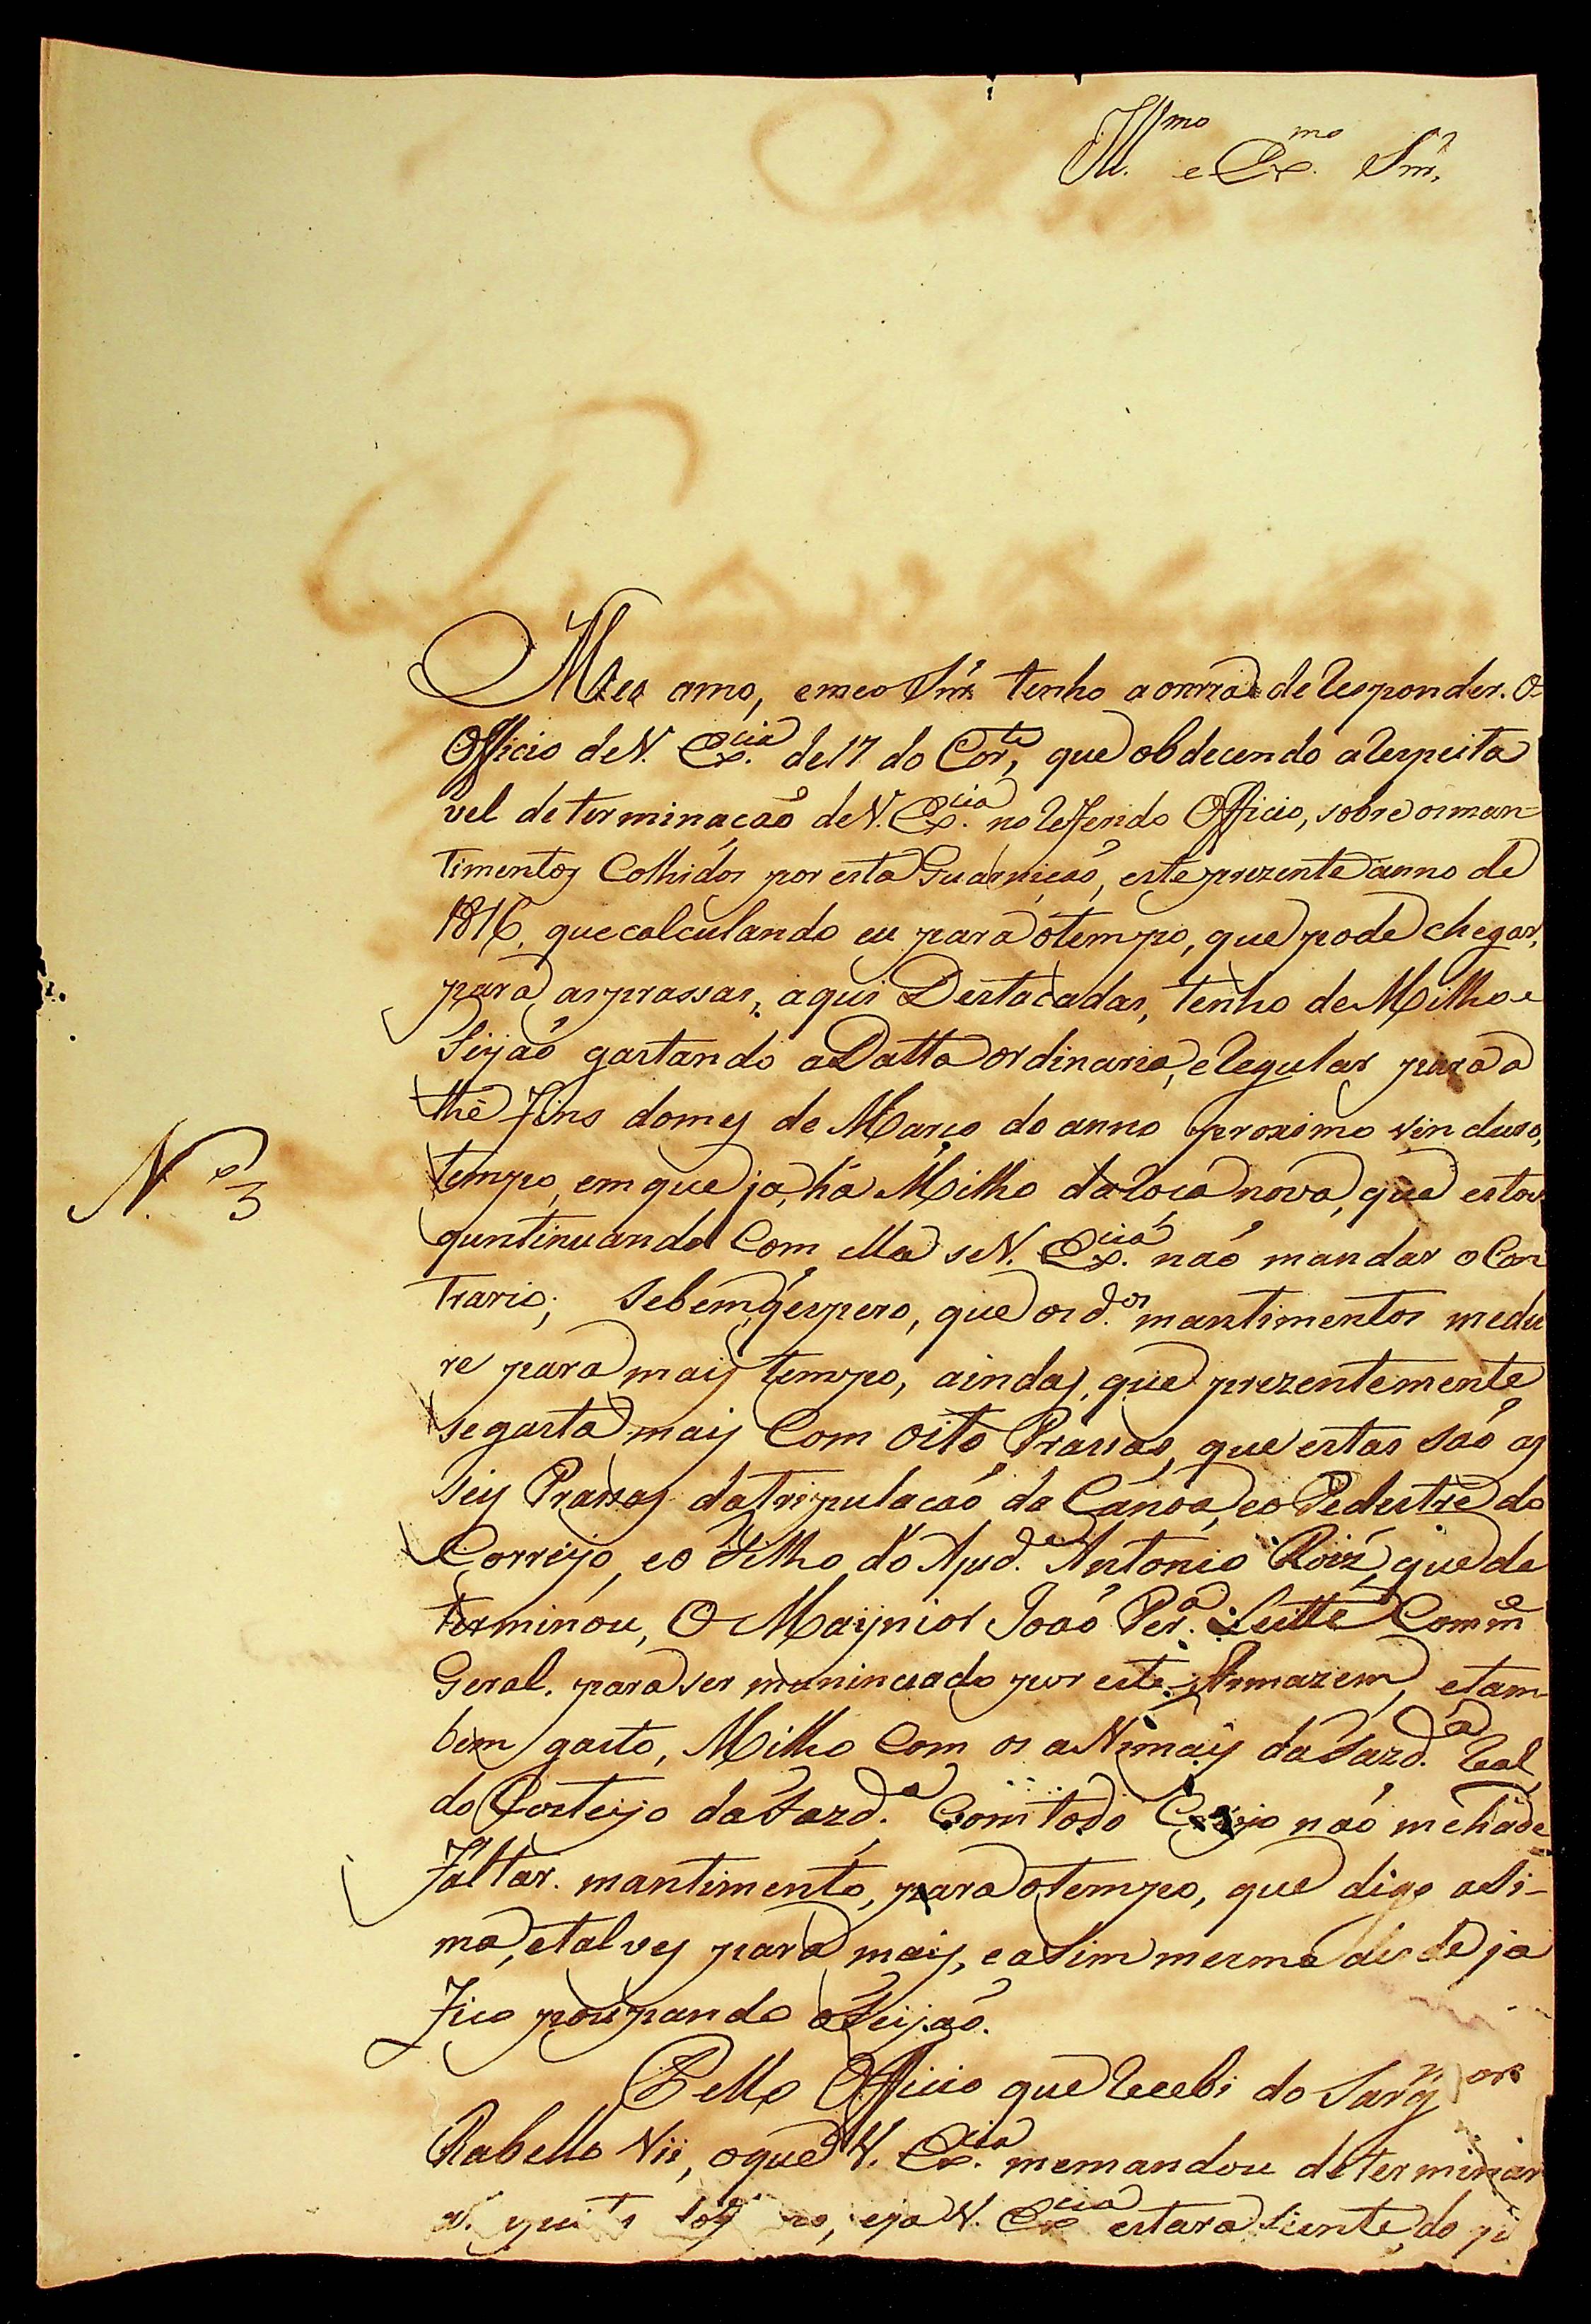 Ill.mo e Ex.mo Snr.
Meu amo, emeo Snr. tenho aonrra deResponder. O
Officio deV. Ex.cia de17 do Cor.te, que obdecendo aRespeita
vel determinação deV. Ex.cia noRefferido Officio, sobre osman-
timentos Colhidos por esta Guarnicão, este prezente anno de
1816, quecalculando eu para otempo, que pode chegar,
para asprassas, aqui Destacadas, tenho de Milho e
Feijão gastando aDatta ordinaria, eRegular para a
thé Fins domes de Março do anno proximo vinduro,
tempo, emque ja há Milho daRoça nova, que estou
quntinuando Com ella seV. Ex.cia não mandar o Con
trario; Sebem q' espero, que os d.os mantimentos medu
re para mais tempo, aindas, que prezentemente
segasta mais Com oito Prassas, que estas são as
seis Prassas datripulacão da Canoa, eo Pedestre do
Correijo, eo Filho do Ajud.e Antonio Roiz, que de
terminou, O Maijnior João Per.a Leitte Comm.e
Geral. para ser moninciado por este Armazem, etam-
bem gasto, Milho Com os aNimais daFazd.a Real
do Custeijo daFazd.a Com todo Creijo não mehade
Faltar. mantimento, para otempo, que digo aSi-
ma, etalves para mais, eaSim mesmo desde ja
Fico poupando oFeijão.
Pello Officio que Recebi do Sarg. mor
Rabello Vii, oque V. Ex.cia memandou determinar
eja V. Ex.cia estara Siente, do
N.º 3